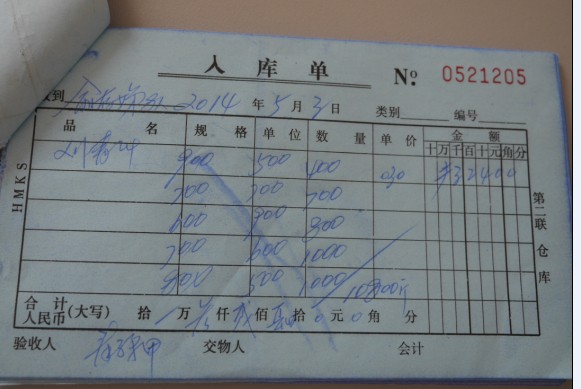 入库单 № 0521205
收到 2014 年 5 月 3 日 类别 编号
品名 规格 单位 数量 单价 金额
十万千百十元角分
900 500 400 030 ¥324000
700 700 700
600 900 900
700 600 1000
900 500 1000 / 10800斤
合计
人民币(大写) 拾 万 仟 佰 拾 0 元 0 角 分
验收人 交物人 会计
HMKS
第二联 仓库